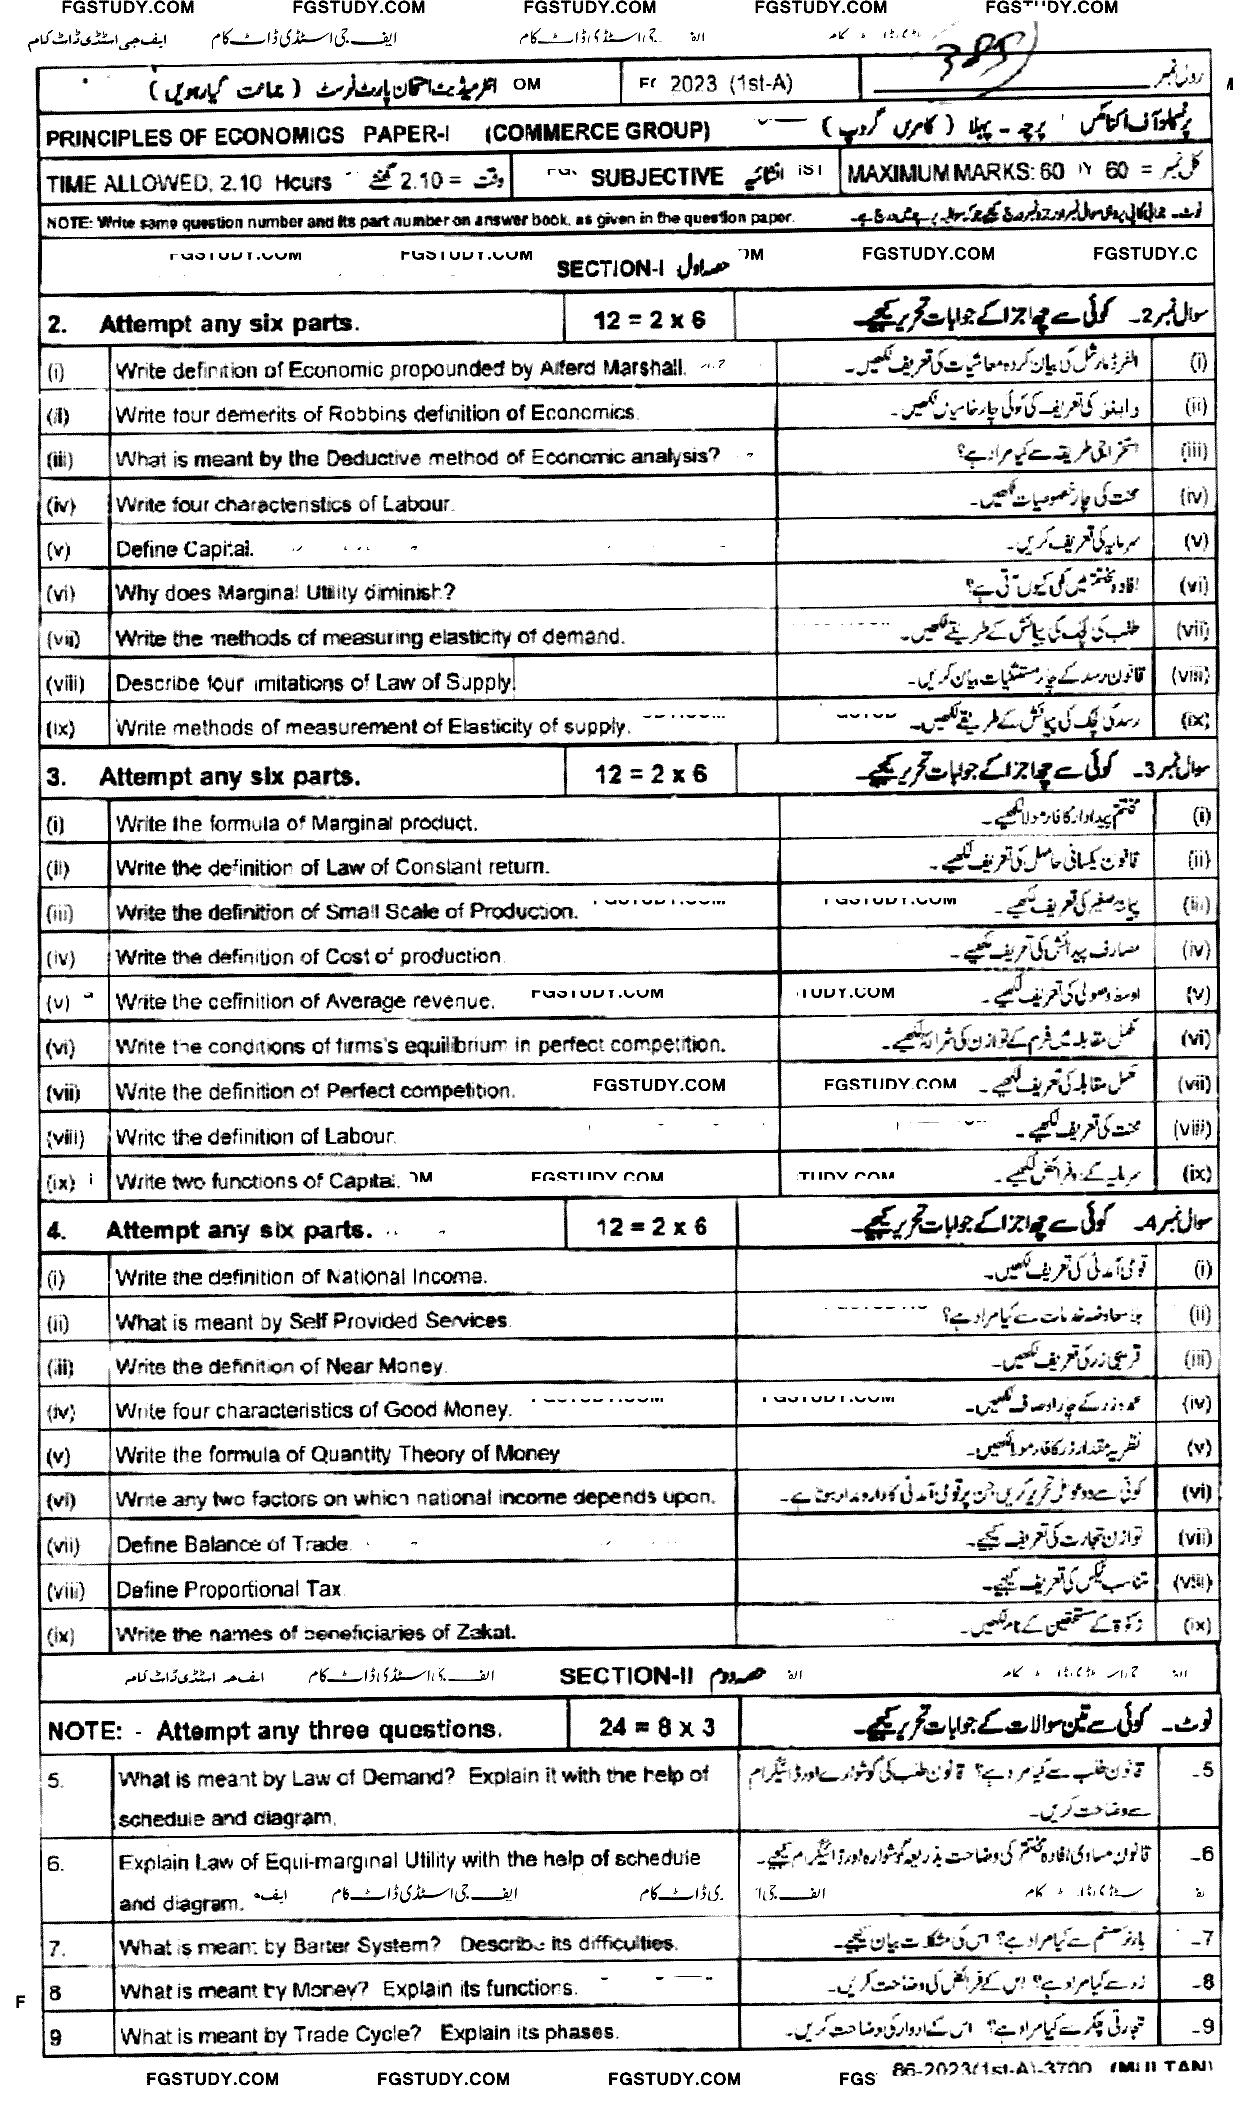 FGSTUDY.COM FGSTUDY.COM FGSTUDY.COM FGSTUDY.COM FGSTUDY.COM
ایف جی اسٹڈی ڈاٹ کام ایف جی اسٹڈی ڈاٹ کام
385
انٹرمیڈیٹ امتحان پارٹ فرسٹ (جماعت گیارہویں) 2023 (1st-A) رول نمبر
PRINCIPLES OF ECONOMICS PAPER-I (COMMERCE GROUP) پرنسپلز آف اکنامکس پرچہ - پہلا (کامرس گروپ)
TIME ALLOWED. 2.10 Hours وقت = 2.10 گھنٹے SUBJECTIVE انشائیہ MAXIMUM MARKS: 60 کل نمبر = 60
NOTE: Write same question number and its part number on answer book, as given in the question paper.
FGSTUDY.COM FGSTUDY.COM SECTION-I حصہ اول FGSTUDY.COM FGSTUDY.C
2. Attempt any six parts. 12 = 2 x 6 سوال نمبر 2۔ کوئی سے چھ اجزا کے جوابات تحریر کیجیے۔
(i) Write definition of Economic propounded by Alferd Marshall. الفرڈ مارشل کی بیان کردہ معاشیات کی تعریف لکھیں۔ (i)
(ii) Write four demerits of Robbins definition of Economics. رابنز کی تعریف کی کوئی چار خامیاں لکھیں۔ (ii)
(iii) What is meant by the Deductive method of Economic analysis? استخراجی طریقہ سے کیا مراد ہے؟ (iii)
(iv) Write four characteristics of Labour. محنت کی چار خصوصیات لکھیں۔ (iv)
(v) Define Capital. سرمایہ کی تعریف کریں۔ (v)
(vi) Why does Marginal Utility diminish? افادہ مختتم میں کمی کیوں آتی ہے؟ (vi)
(vii) Write the methods of measuring elasticity of demand. طلب کی لچک کی پیمائش کے طریقے لکھیں۔ (vii)
(viii) Describe four imitations of Law of Supply. قانون رسد کے چار مستثنیات بیان کریں۔ (viii)
(ix) Write methods of measurement of Elasticity of supply. رسد کی لچک کی پیمائش کے طریقے لکھیں۔ (ix)
3. Attempt any six parts. 12 = 2 x 6 سوال نمبر 3۔ کوئی سے چھ اجزا کے جوابات تحریر کیجیے۔
(i) Write the formula of Marginal product. مختتم پیداوار کا فارمولا لکھیے۔ (i)
(ii) Write the definition of Law of Constant return. قانون یکسانی حاصل کی تعریف لکھیے۔ (ii)
(iii) Write the definition of Small Scale of Production. FGSTUDY.COM FGSTUDY.COM پیمانہ صغیر کی تعریف لکھیے۔ (iii)
(iv) Write the definition of Cost of production. مصارف پیدائش کی تعریف لکھیے۔ (iv)
(v) Write the definition of Average revenue. FGSTUDY.COM TUDY.COM اوسط وصولی کی تعریف لکھیے۔ (v)
(vi) Write the conditions of firms's equilibrium in perfect competition. مکمل مقابلہ میں فرم کے توازن کی شرائط لکھیے۔ (vi)
(vii) Write the definition of Perfect competition. FGSTUDY.COM FGSTUDY.COM مکمل مقابلہ کی تعریف لکھیے۔ (vii)
(viii) Write the definition of Labour. محنت کی تعریف لکھیے۔ (viii)
(ix) Write two functions of Capital. OM FGSTUDY.COM TUDY.COM سرمایہ کے دو فرائض لکھیے۔ (ix)
4. Attempt any six parts. 12 = 2 x 6 سوال نمبر 4۔ کوئی سے چھ اجزا کے جوابات تحریر کیجیے۔
(i) Write the definition of National Income. قومی آمدنی کی تعریف لکھیں۔ (i)
(ii) What is meant by Self Provided Services. بلا معاوضہ خدمات سے کیا مراد ہے؟ (ii)
(iii) Write the definition of Near Money. قریبی زر کی تعریف لکھیں۔ (iii)
(iv) Write four characteristics of Good Money. FGSTUDY.COM FGSTUDY.COM عمدہ زر کے چار اوصاف لکھیں۔ (iv)
(v) Write the formula of Quantity Theory of Money نظریہ مقدار زر کا فارمولا لکھیں۔ (v)
(vi) Write any two factors on which national income depends upon. کوئی سے دو عوامل تحریر کریں جن پر قومی آمدنی کا دارومدار ہوتا ہے۔ (vi)
(vii) Define Balance of Trade. توازن تجارت کی تعریف کیجیے۔ (vii)
(viii) Define Proportional Tax. متناسب ٹیکس کی تعریف کیجیے۔ (viii)
(ix) Write the names of beneficiaries of Zakat. زکوٰۃ کے مستحقین کے نام لکھیں۔ (ix)
ایف جی اسٹڈی ڈاٹ کام SECTION-II حصہ دوم
NOTE: - Attempt any three questions. 24 = 8 x 3 نوٹ۔ کوئی سے تین سوالات کے جوابات تحریر کیجیے۔
5. What is meant by Law of Demand? Explain it with the help of قانون طلب سے کیا مراد ہے؟ قانون طلب کی گوشوارے اور ڈائیگرام 5۔
schedule and diagram. سے وضاحت کریں۔
6. Explain Law of Equi-marginal Utility with the help of schedule قانون مساوی افادہ مختتم کی وضاحت بذریعہ گوشوارہ اور ڈائیگرام کیجیے۔ 6۔
and diagram. ایف جی اسٹڈی ڈاٹ کام
7. What is meant by Barter System? Describe its difficulties. بارٹر سسٹم سے کیا مراد ہے؟ اس کی مشکلات بیان کیجیے۔ 7۔
8 What is meant by Money? Explain its functions. زر سے کیا مراد ہے؟ اس کے فرائض کی وضاحت کریں۔ 8۔
9 What is meant by Trade Cycle? Explain its phases. تجارتی چکر سے کیا مراد ہے؟ اس کے ادوار کی وضاحت کریں۔ 9۔
86-2023(1st-A)-3700 (MULTAN)
FGSTUDY.COM FGSTUDY.COM FGSTUDY.COM FGS